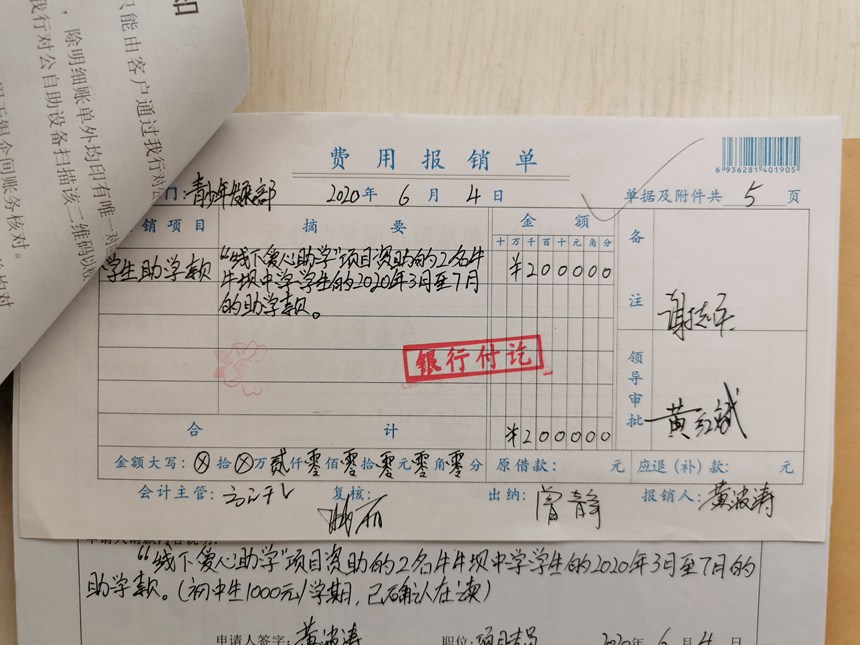 只能由客户通过我行对
，除明细账单外均印有唯一对
我行对公自助设备扫描该二维码以
银企间账务核对。
费用报销单
6 936281 401905
门：青少年发展部 2020年 6 月 4 日 单据及附件共 5 页
销项目 摘要 金额 备注
十万千百十元角分
学生助学款 “线下爱心助学”项目资助的2名牛
牛坝中学学生的2020年3月至7月
的助学款。
¥200000
银行付讫
领导审批 黄红斌
合计 ¥200000
金额大写：ⓧ拾ⓧ万贰仟零佰零拾零元零角零分 原借款： 元 应退（补）款： 元
会计主管： 复核： 出纳：曾静 报销人：黄波涛
“线下爱心助学”项目资助的2名牛牛坝中学学生的2020年3月至7月的
助学款。（初中生1000元/学期，已确认在读）
申请人签字：黄波涛 职位：项目专员 2020年 6 月 4 日